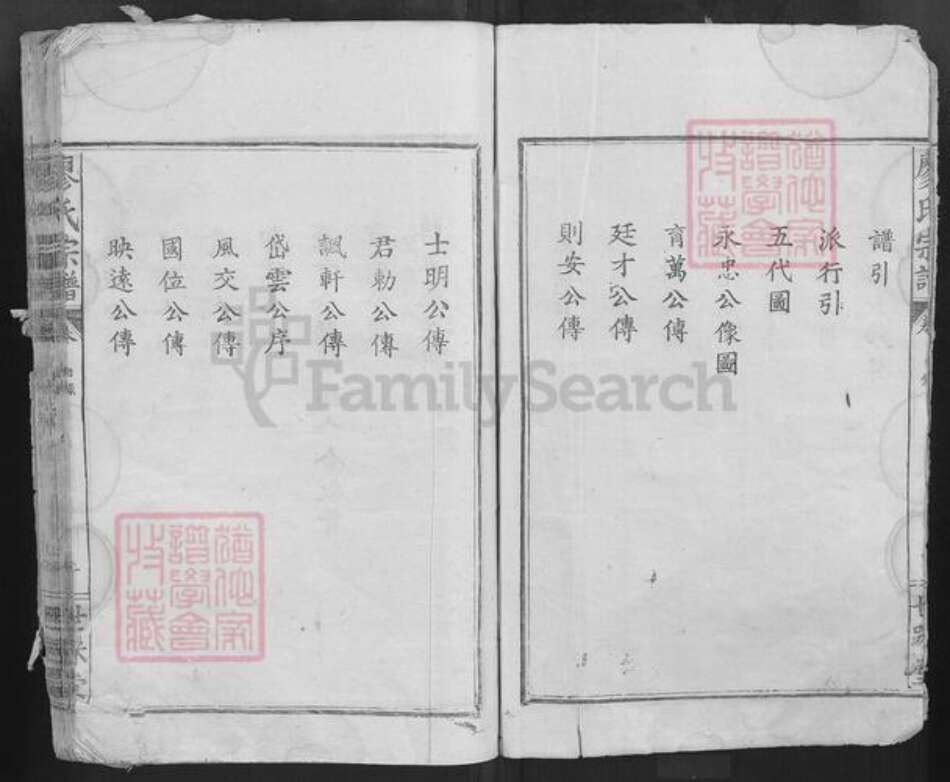 譜引
派行引
五代圖
永忠公像圖
育萬公傳
廷才公傳
則安公傳
士明公傳
君勅公傳
諷軒公傳
岱雲公序
風交公傳
國位公傳
映遠公傳
廖氏宗譜
卷
世綵堂
FamilySearch
譜學會
收藏